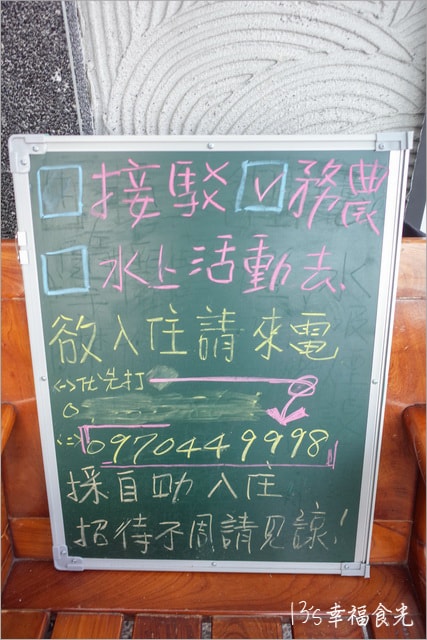 □接駁☑務農
□水上活動去.
欲入住請來電
<一>優先打
0
<二>0970449998
採自助入住
招待不周請見諒!
13's幸福食光